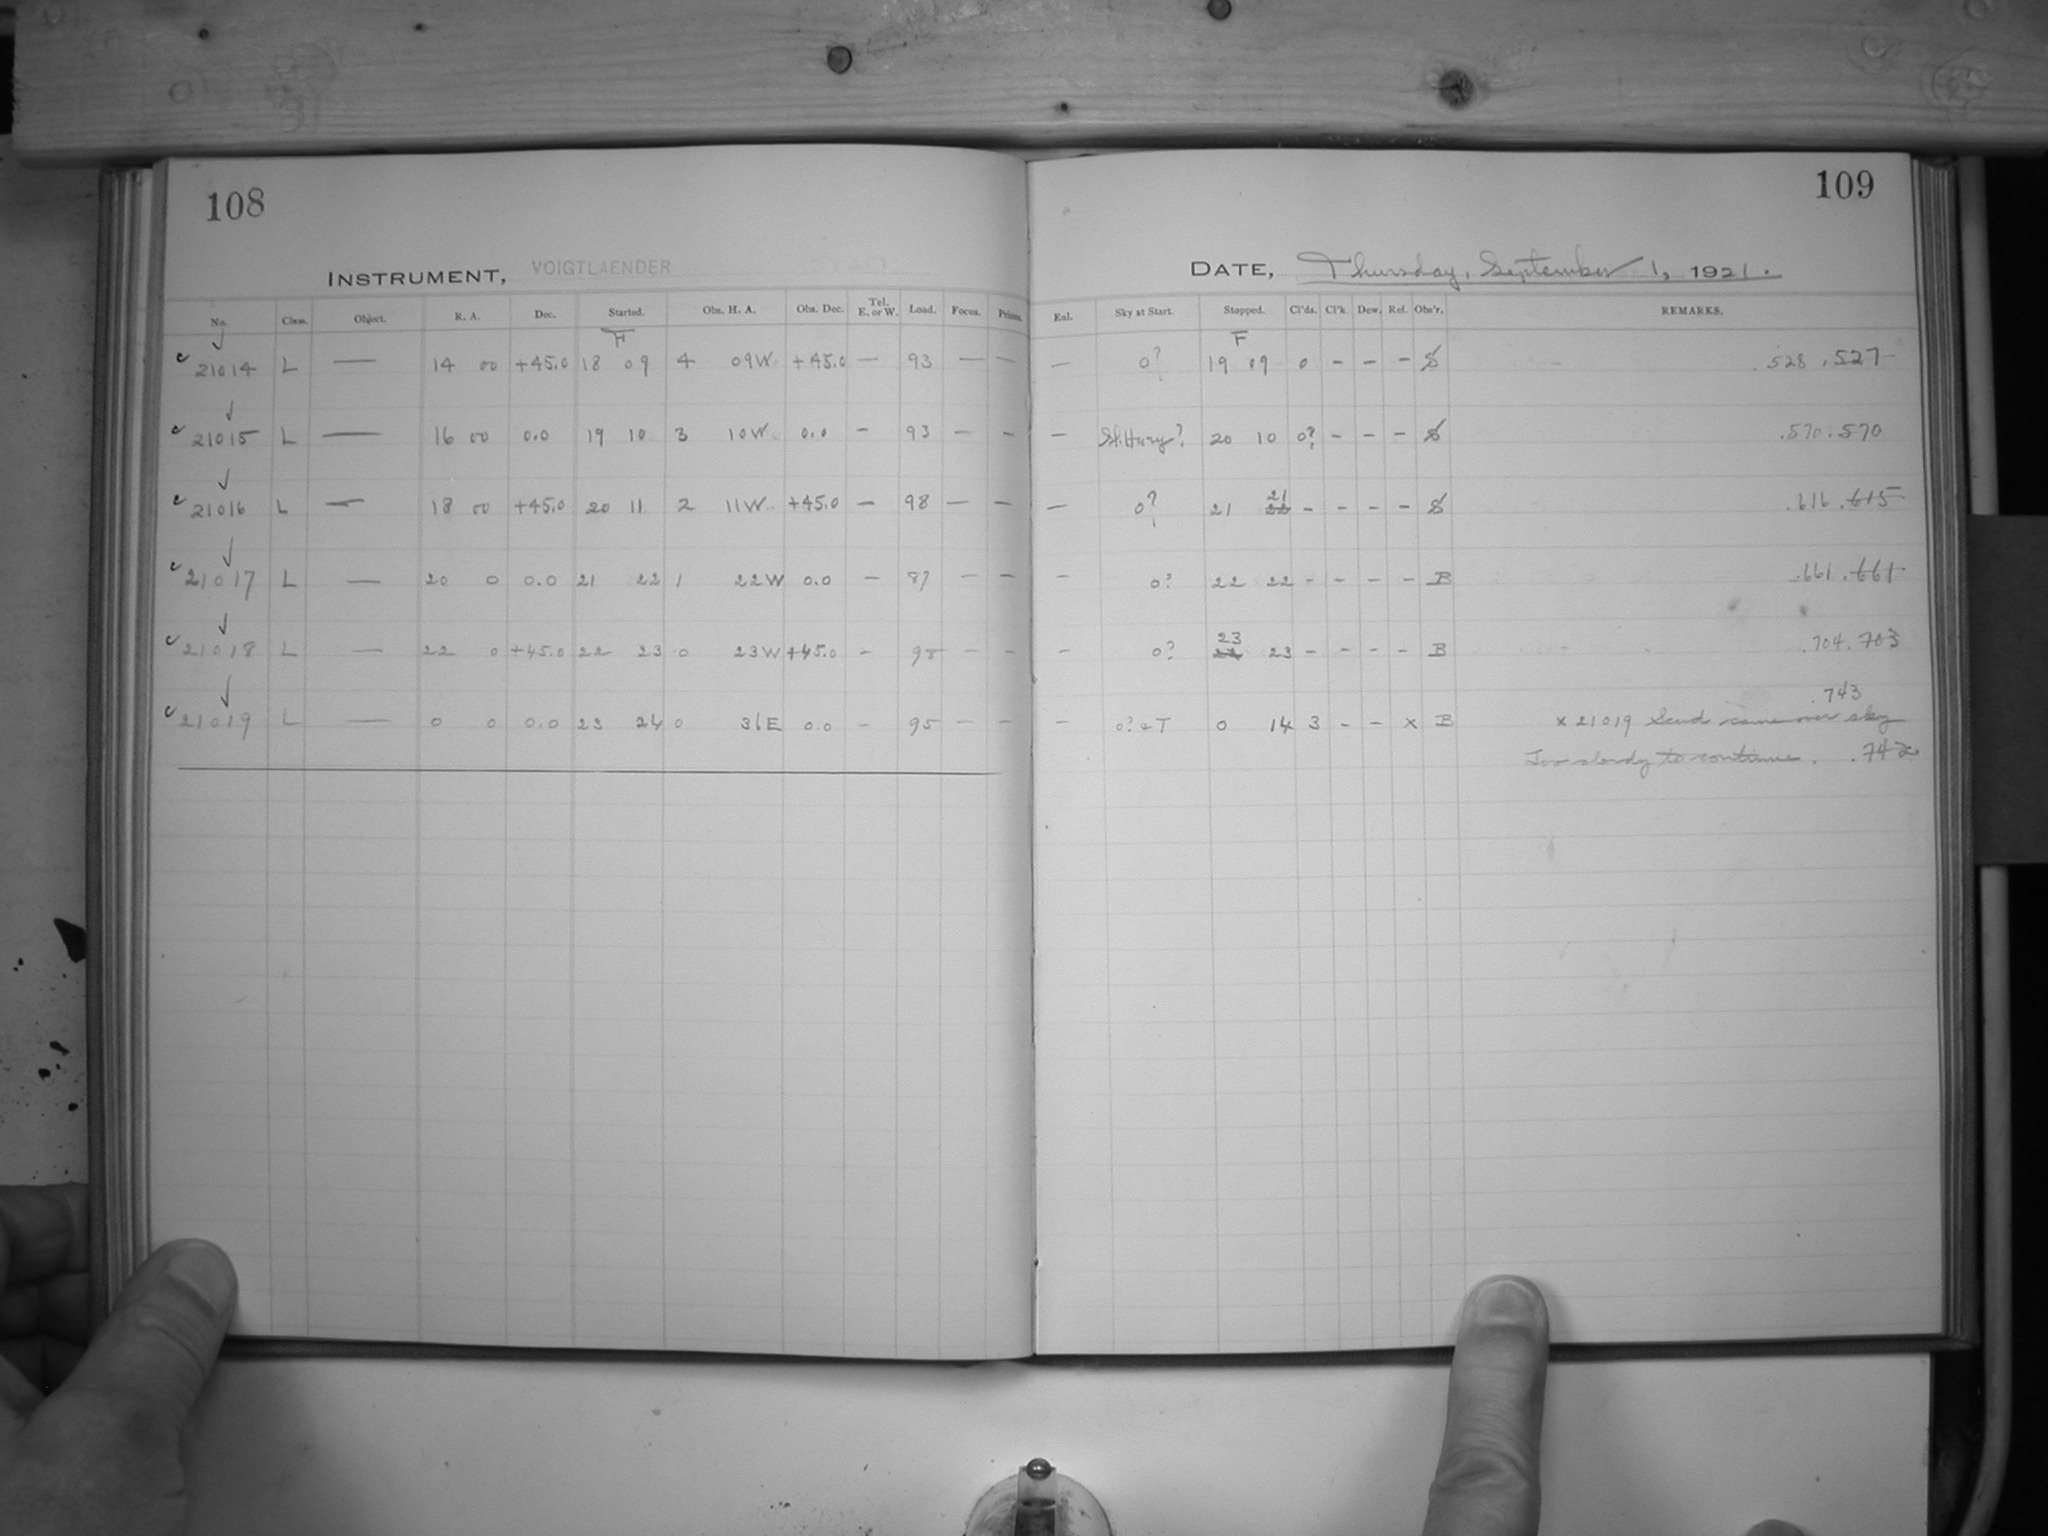 108
INSTRUMENT, VOIGTLAENDER
No. Class. Object. R. A. Dec. Started. Obs. H. A. Obs. Dec. Tel. E. or W. Load. Focus. Prisms.
F
21014 L — 14 00 +45.0 18 09 4 09W +45.0 — 93 — —
21015 L — 16 00 0.0 19 10 3 10W 0.0 — 93 — —
21016 L — 18 00 +45.0 20 11 2 11W +45.0 — 98 — —
21017 L — 20 0 0.0 21 22 1 22W 0.0 — 87 — —
21018 L — 22 0 +45.0 22 23 0 23W +45.0 — — —
21019 L — 0 0 0.0 23 24 0 36E 0.0 — 95 — —
109
DATE, Thursday, September 1, 1921.
Enl. Sky at Start. Stopped. Cl'ds. Cl'k. Dew. Ref. Obs'r. REMARKS.
F
— 0? 19 09 0 - - - S .528 .527
— Sl. Hazy? 20 10 0? - - - S .570 .570
— 0? 21 21 22 - - - - S .616 .615
— 0? 22 22 - - - - B .661 .661
23
— 0? 22 23 - - - - B .704 .703
.743
— 0? 0 14 3 - - x B x 21019 Scud came over sky
Too cloudy to continue. .742